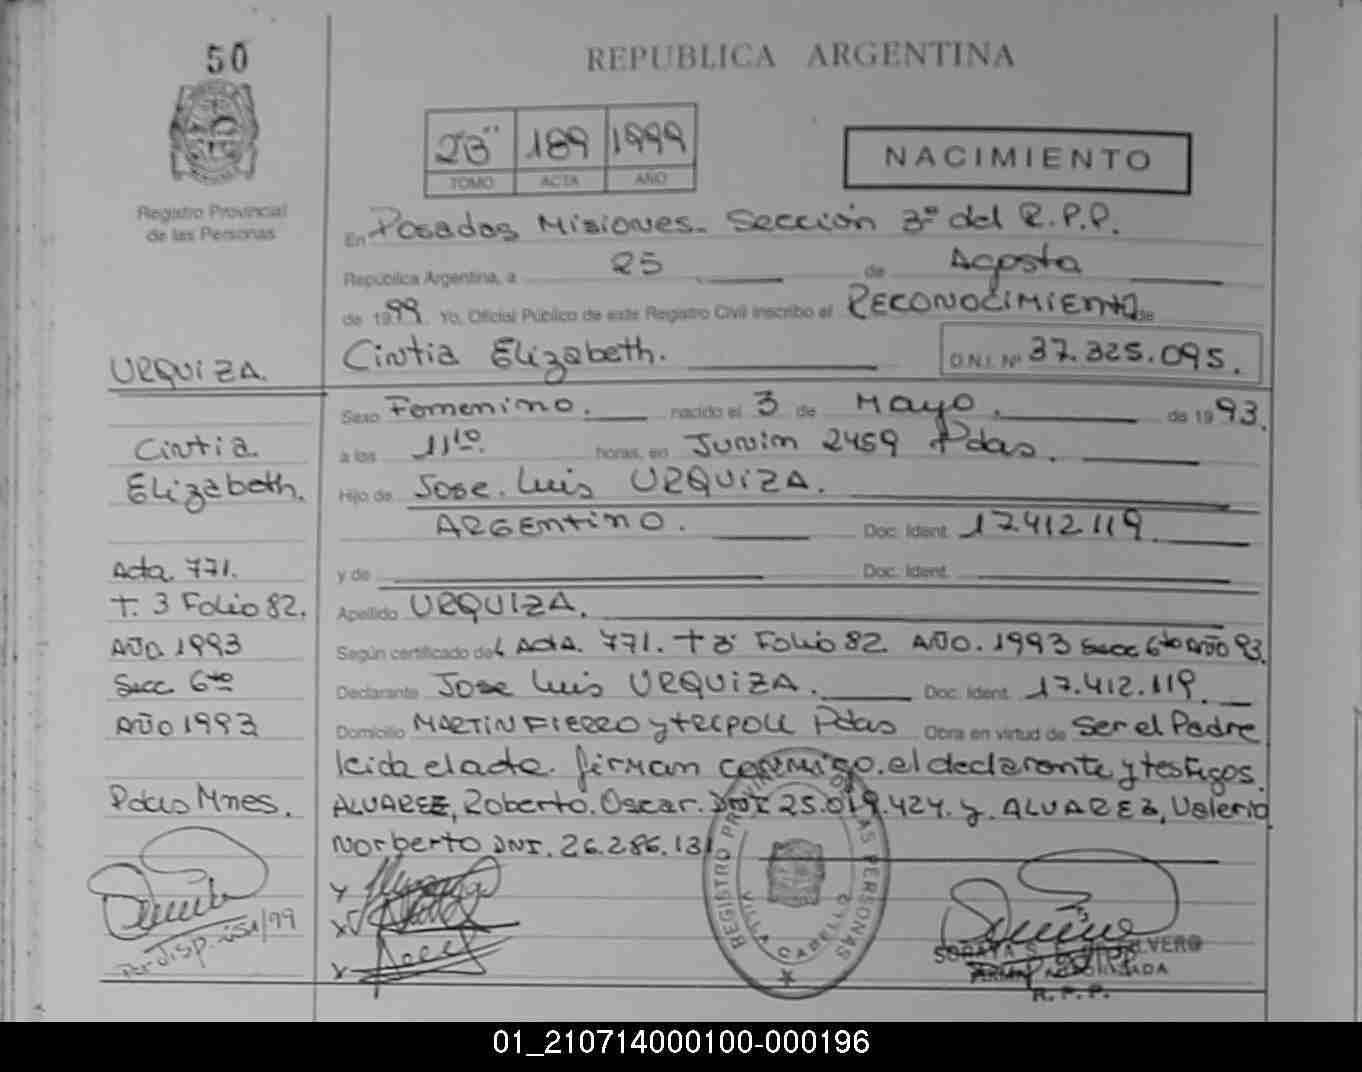 50
REPUBLICA ARGENTINA
189 1999
TOMO ACTA AÑO
NACIMIENTO
Registro Provincial
de las Personas
En Posadas Misiones. Sección 3ª del R.P.P.
República Argentina, a 25 de Agosto
de 1999. Yo, Oficial Público de este Registro Civil inscribo el RECONOCIMIENTO de
URQUIZA
Cintia Elizabeth. D.N.I. Nº 37.325.095.
Sexo Femenino. nacido el 3 de Mayo. de 1993.
Cintia
Elizabeth.
a las 11¹⁰ horas, en Junin 2459 Pdas.
Hijo de Jose Luis URQUIZA.
ARGENTINO. Doc. Ident. 17.412.119
y de Doc. Ident.
Acta 771.
T. 3 Folio 82.
Año 1993
Secc 6ta
Año 1993
Pdas Mnes.
Apellido URQUIZA.
Según certificado del Acta. 771. T 3 Folio 82 Año. 1993 Secc 6ta Año 93.
Declarante Jose Luis URQUIZA. Doc. Ident. 17.412.119
Domicilio MARTIN FIERRO y TRIPOLI Pdas Obra en virtud de Ser el Padre
leida el acta. firman conmigo. el declarante y testigos
ALVAREZ, Roberto. Oscar. DNI 25.019.424. y. ALVAREZ, Valerio
Norberto DNI. 26.286.131
REGISTRO PROVINCIAL DE LAS PERSONAS
VILLA CABELLO
por Disp. /99
R. P. P.
01_210714000100-000196